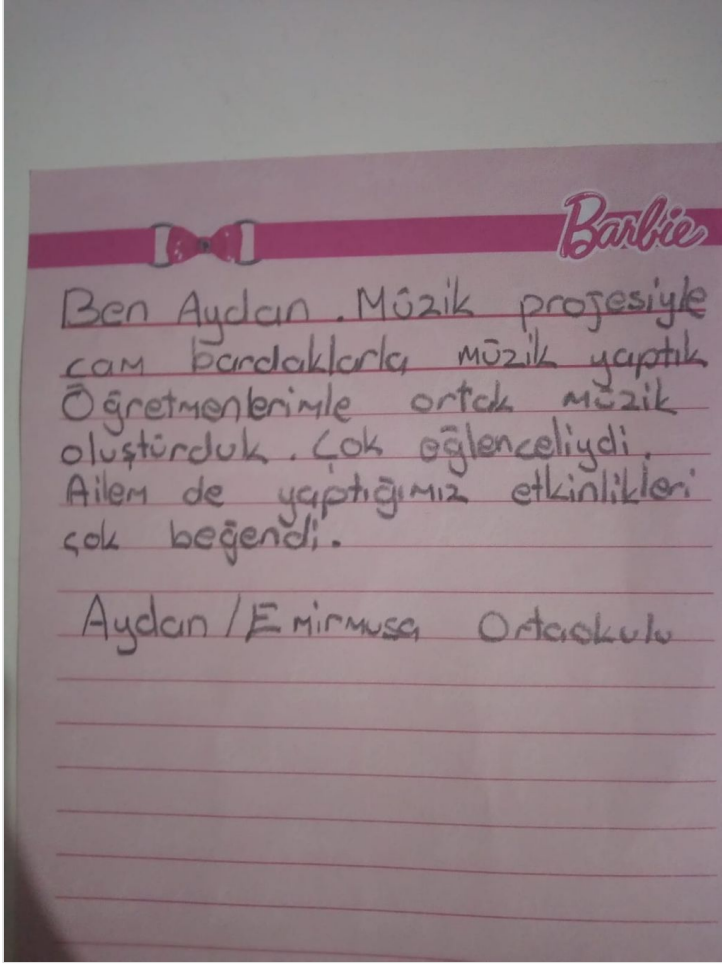 Barbie
Ben Aydan. Müzik projesiyle
cam bardaklarla müzik yaptık
Öğretmenlerimle ortak müzik
oluştürduk. Çok eğlenceliydi.
Ailem de yaptığımız etkinlikleri
çok beğendi.
Aydan/Emirmusa Ortaokulu